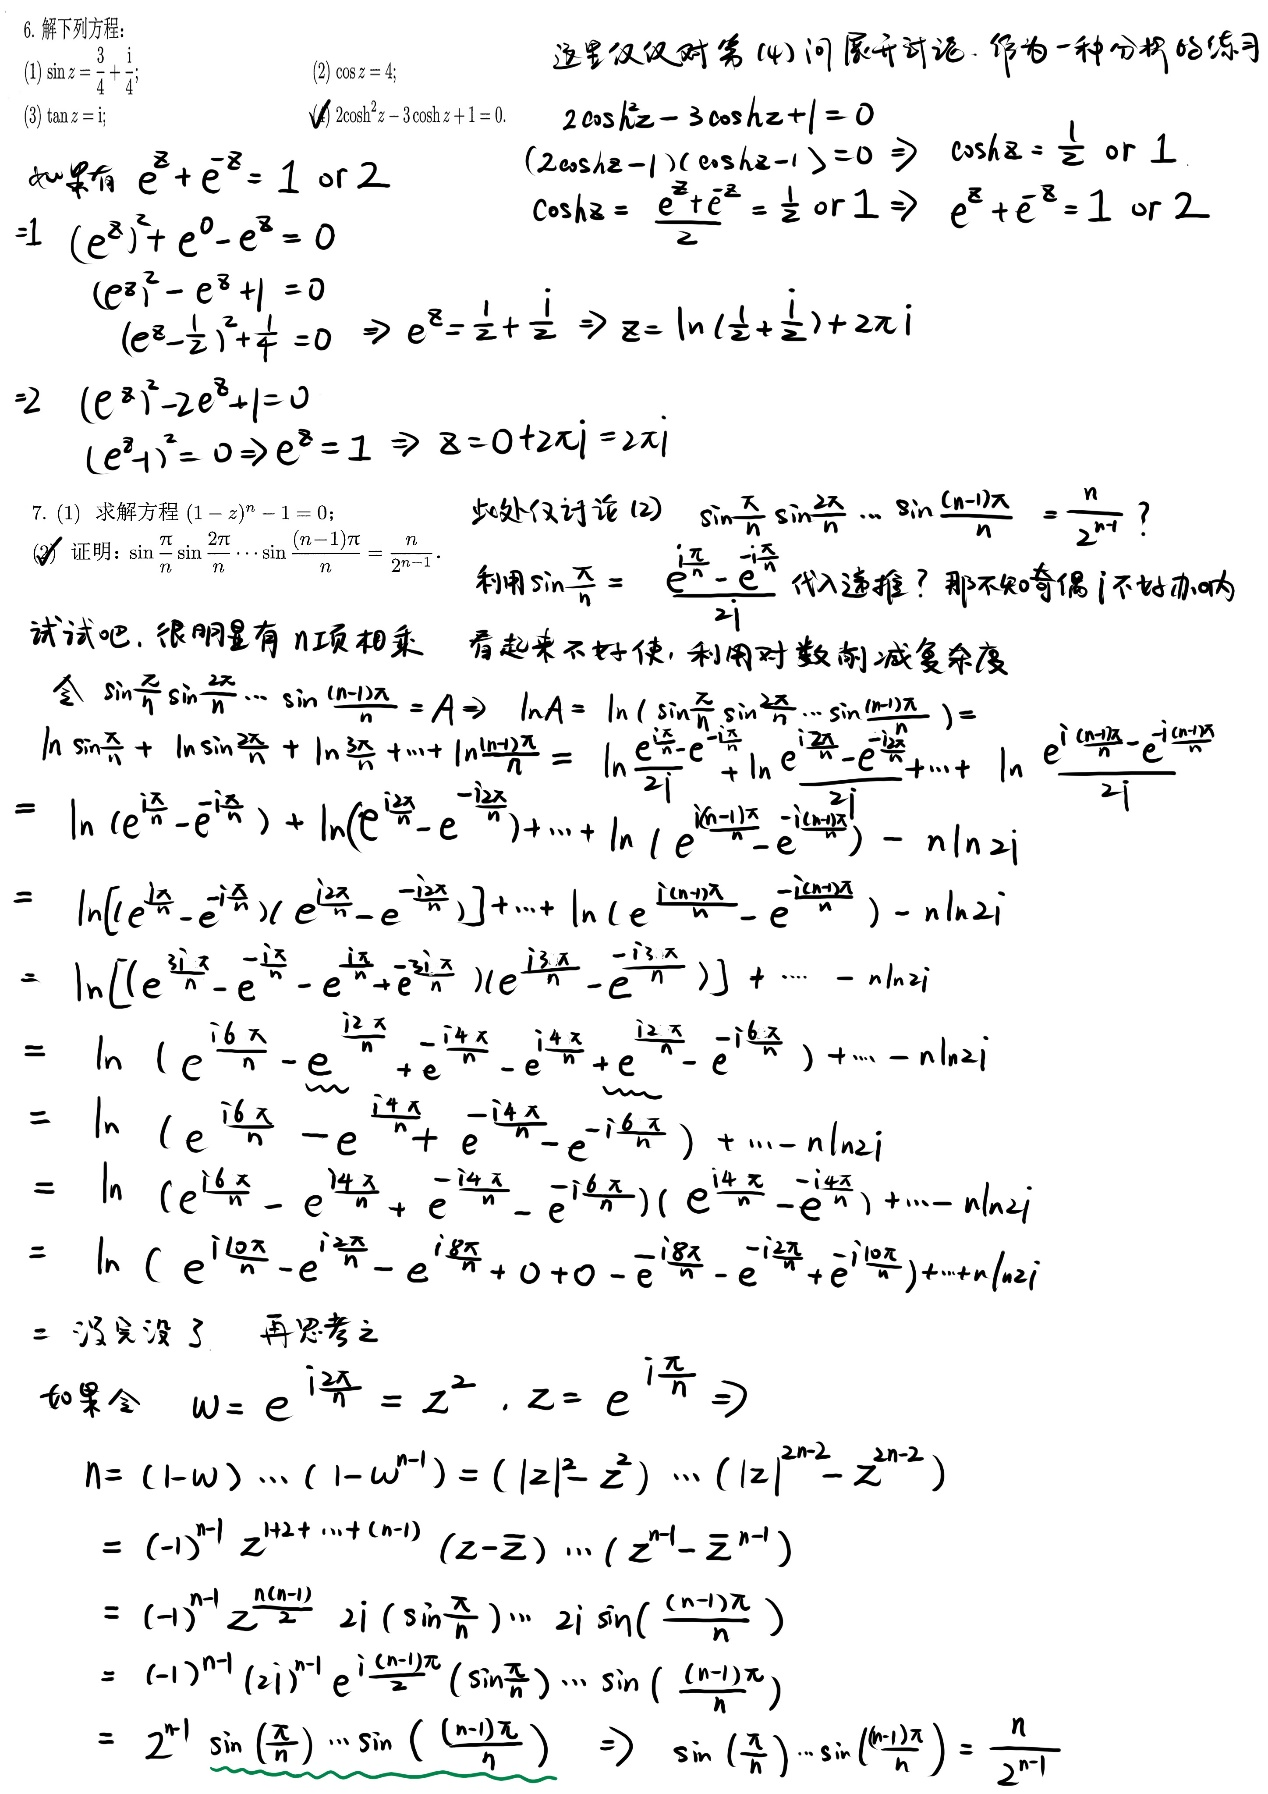 6. 解下列方程:
(1) sin z = 3/4 + i/4; (2) cos z = 4;
(3) tan z = i; (4) 2cosh²z − 3cosh z + 1 = 0.
这里仅仅对第(4)问展开讨论. 作为一种分析的练习
2cosh²z − 3coshz + 1 = 0
(2coshz − 1)(coshz − 1) = 0 ⇒ coshz = 1/2 or 1.
coshz = (e^z + e^{-z})/2 = 1/2 or 1 ⇒ e^z + e^{-z} = 1 or 2
如果有 e^z + e^{-z} = 1 or 2
=1 (e^z)² + e^0 − e^z = 0
(e^z)² − e^z + 1 = 0
(e^z − 1/2)² + 1/4 = 0 ⇒ e^z = 1/2 + i/2 ⇒ z = ln(1/2 + i/2) + 2πi
=2 (e^z)² − 2e^z + 1 = 0
(e^z − 1)² = 0 ⇒ e^z = 1 ⇒ z = 0 + 2πi = 2πi
7. (1) 求解方程 (1 − z)^n − 1 = 0;
(2) 证明: sin π/n sin 2π/n ⋯ sin (n−1)π/n = n/2^{n−1}.
此处仅讨论(2) sin π/n sin 2π/n ⋯ sin (n−1)π/n = n/2^{n−1} ?
利用 sin π/n = (e^{iπ/n} − e^{-iπ/n})/2i 代入递推? 那不知奇偶 i 不好办呐
试试吧. 很明显有n项相乘 看起来不好使, 利用对数削减复杂度
令 sin π/n sin 2π/n ⋯ sin (n−1)π/n = A ⇒ lnA = ln(sin π/n sin 2π/n ⋯ sin (n−1)π/n) =
ln sin π/n + ln sin 2π/n + ln 3π/n + ⋯ + ln (n−1)π/n = ln (e^{iπ/n} − e^{-iπ/n})/2i + ln (e^{i2π/n} − e^{-i2π/n})/2i + ⋯ + ln (e^{i(n−1)π/n} − e^{-i(n−1)π/n})/2i
= ln(e^{iπ/n} − e^{-iπ/n}) + ln(e^{i2π/n} − e^{-i2π/n}) + ⋯ + ln(e^{i(n−1)π/n} − e^{-i(n−1)π/n}) − nln2i
= ln[(e^{iπ/n} − e^{-iπ/n})(e^{i2π/n} − e^{-i2π/n})] + ⋯ + ln(e^{i(n−1)π/n} − e^{-i(n−1)π/n}) − nln2i
= ln[(e^{3iπ/n} − e^{-iπ/n} − e^{iπ/n} + e^{-3iπ/n})(e^{i3π/n} − e^{-i3π/n})] + ⋯ − nln2i
= ln(e^{i6π/n} − e^{i2π/n} + e^{-i4π/n} − e^{i4π/n} + e^{i2π/n} − e^{-i6π/n}) + ⋯ − nln2i
= ln(e^{i6π/n} − e^{i4π/n} + e^{-i4π/n} − e^{-i6π/n}) + ⋯ − nln2i
= ln(e^{i6π/n} − e^{i4π/n} + e^{-i4π/n} − e^{-i6π/n})(e^{i4π/n} − e^{-i4π/n}) + ⋯ − nln2i
= ln(e^{i10π/n} − e^{i2π/n} − e^{i8π/n} + 0 + 0 − e^{-i8π/n} − e^{-i2π/n} + e^{-i10π/n}) + ⋯ + nln2i
= 没完没了 再思考之
如果令 w = e^{i2π/n} = z². z = e^{iπ/n} ⇒
n = (1−w) ⋯ (1−w^{n−1}) = (|z|² − z²) ⋯ (|z|^{2n−2} − z^{2n−2})
= (−1)^{n−1} z^{1+2+⋯+(n−1)} (z − z̄) ⋯ (z^{n−1} − z̄^{n−1})
= (−1)^{n−1} z^{n(n−1)/2} 2i(sin π/n) ⋯ 2i sin((n−1)π/n)
= (−1)^{n−1} (2i)^{n−1} e^{i(n−1)π/2} (sin π/n) ⋯ sin((n−1)π/n)
= 2^{n−1} sin(π/n) ⋯ sin((n−1)π/n) ⇒ sin(π/n) ⋯ sin((n−1)π/n) = n/2^{n−1}